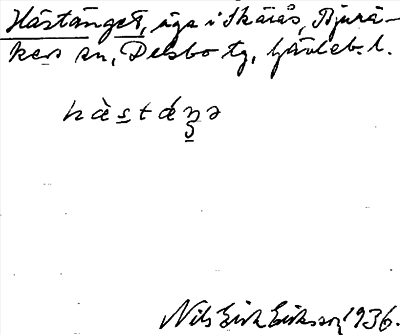 Hästänget, äga i Skärås, Bjurå-
kers sn, Delsbo tg, Gävleb. l.
hàs̲táŋ̲ə
Nils Erik Eriksson 1936.